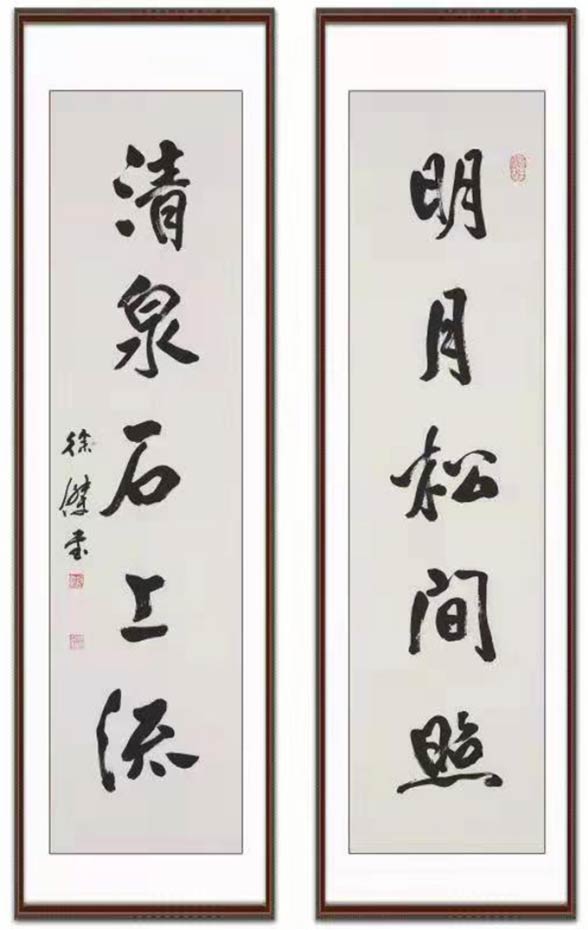 明月松间照
清泉石上流
徐杰书